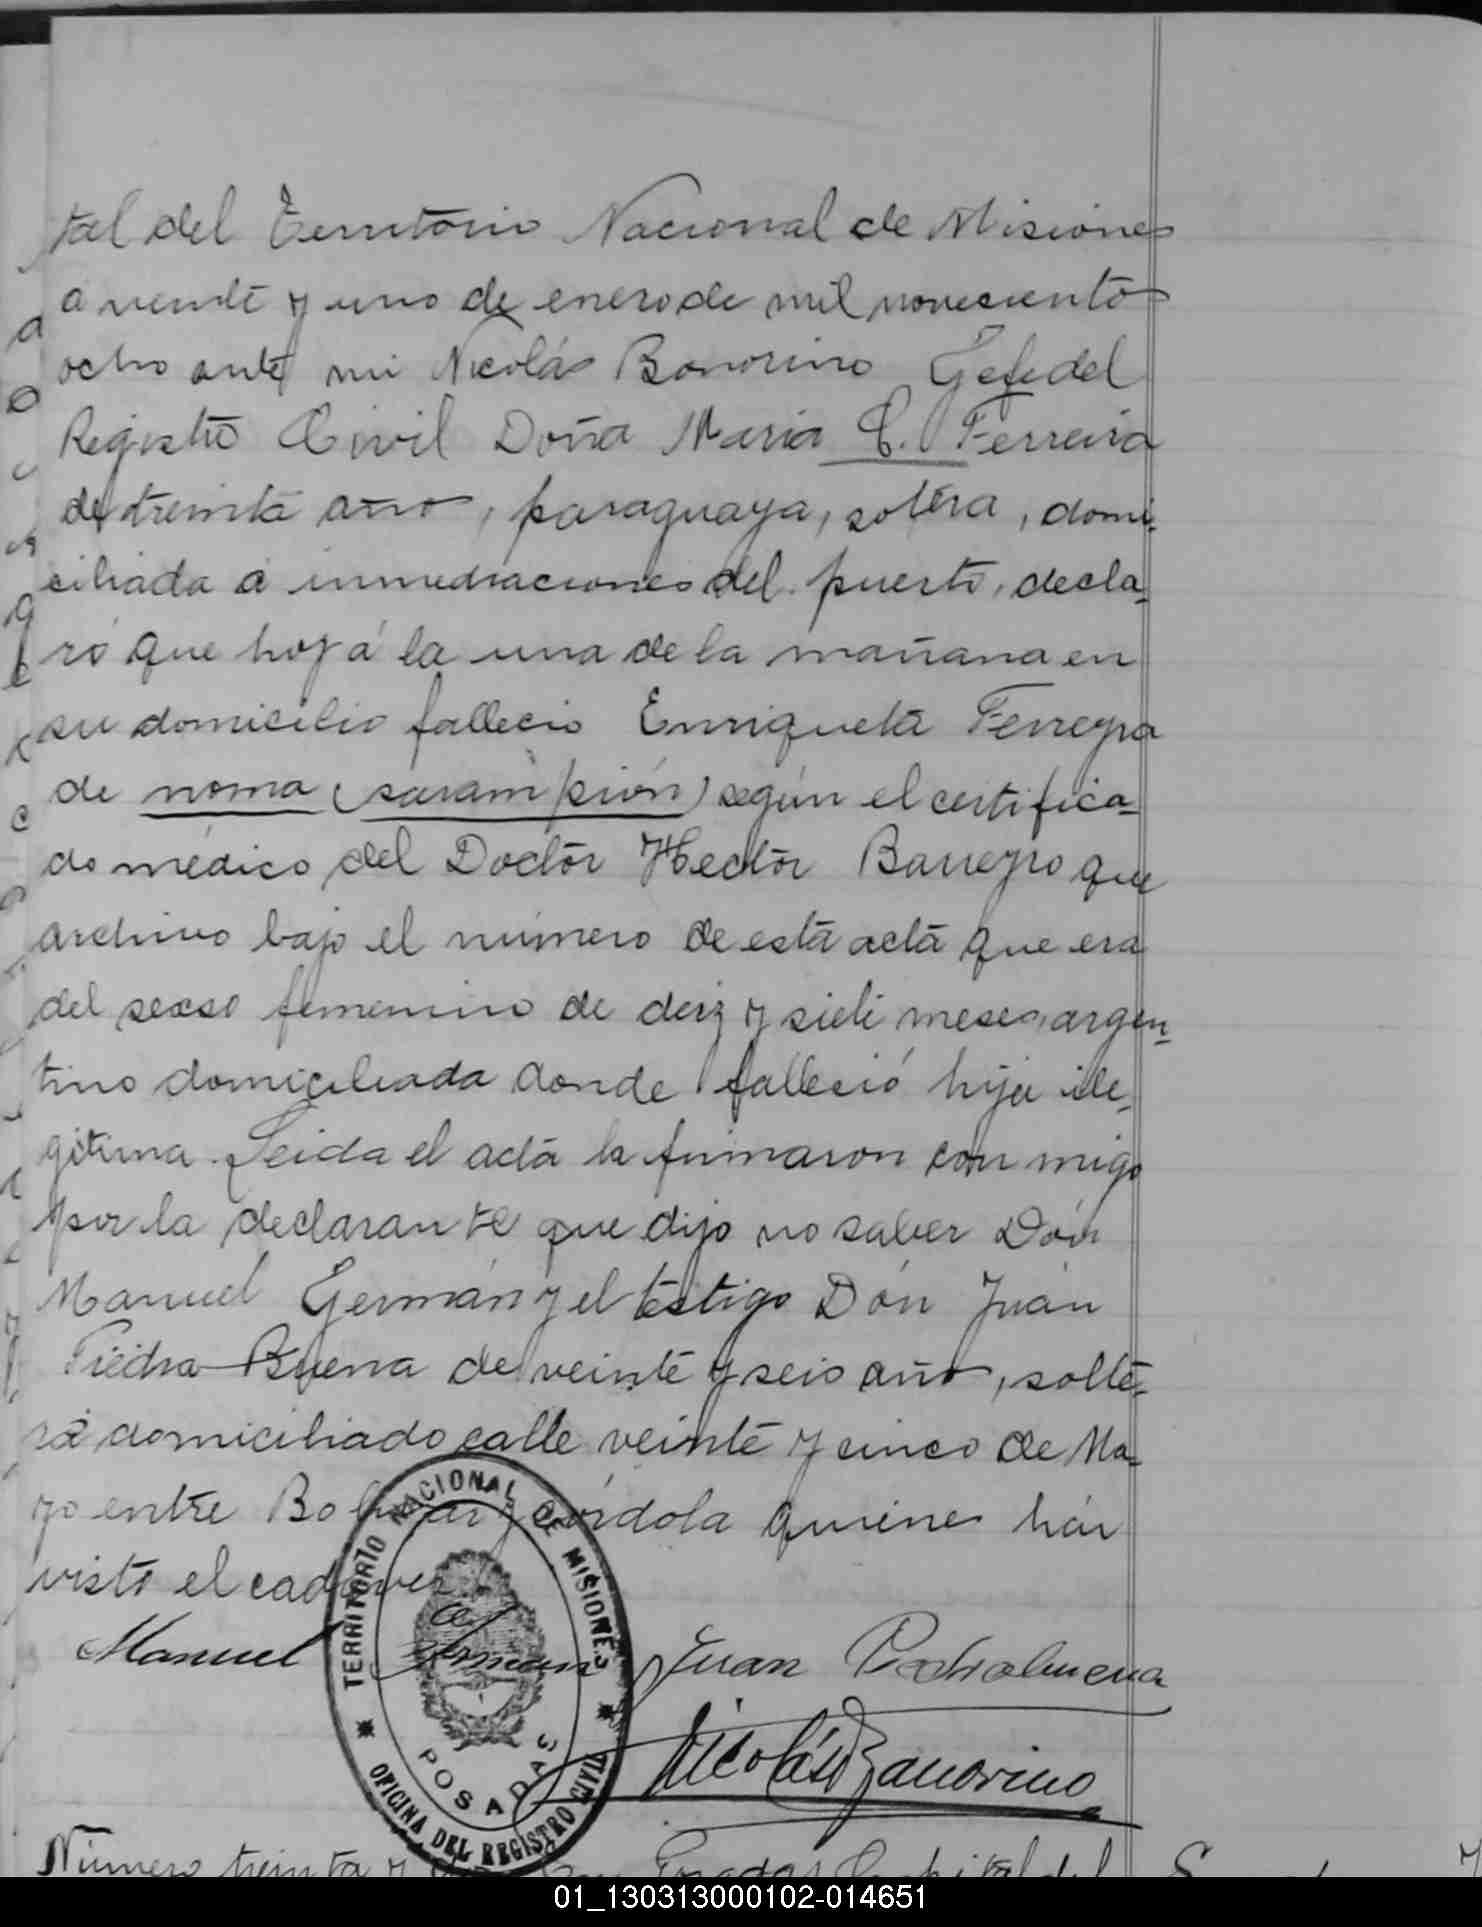 tal del Territorio Nacional de Misiones
a veinte y uno de enero de mil novecientos
ocho ante mi Nicolás Bonorino Gefe del
Registro Civil Doña Maria C. Ferreira
de treinta años, paraguaya, soltera, domi-
ciliada á inmediaciones del puerto, decla-
ró que hoy á la una de la mañana en
su domicilio fallecio Enriqueta Ferreyra
de noma (sarampión) según el certifica-
do médico del Doctor Hector Barreyro que
archivo bajo el número de esta acta que era
del secso femenino de deiz y siete meses, argen-
tino domiciliada donde falleció hija ile-
gitima. Leida el acta la firmaron con migo
por la declarante que dijo no saber Dón
Manuel Germán y el testigo Dón Juán
Piedra Buena de veinte y seis años, solte-
ro domiciliado calle veinte y cinco de Ma-
yo entre Bolivar y Córdola quienes hán
visto el cadaver.
Manuel Germán Juan Piedrabuena
Nicolás Bonorino
TERRITORIO NACIONAL DE MISIONES
POSADAS
OFICINA DEL REGISTRO CIVIL
Número treinta y Posadas Capital del
01_130313000102-014651